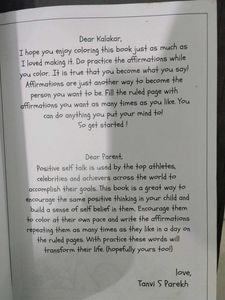 Dear Kalakar,
I hope you enjoy coloring this book just as much as
I loved making it. Do practice the affirmations while
you color. It is true that you become what you say!
Affirmations are just another way to become the
person you want to be. Fill the ruled page with
affirmations you want as many times as you like. You
can do anything you put your mind to!
So get started !
Dear Parent,
Positive self talk is used by the top athletes,
celebrities and achievers across the world to
accomplish their goals. This book is a great way to
encourage the same positive thinking in your child and
build a sense of self belief in them. Encourage them
to color at their own pace and write the affirmations
repeating them as many times as they like in a day on
the ruled pages. With practice these words will
transform their life. (hopefully yours too!)
love,
Tanvi S Parekh